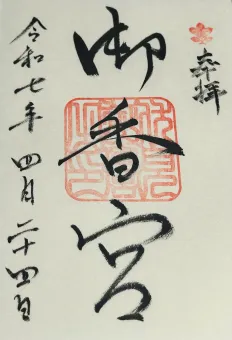 奉拝
御香宮
令和七年 四月 二十四日